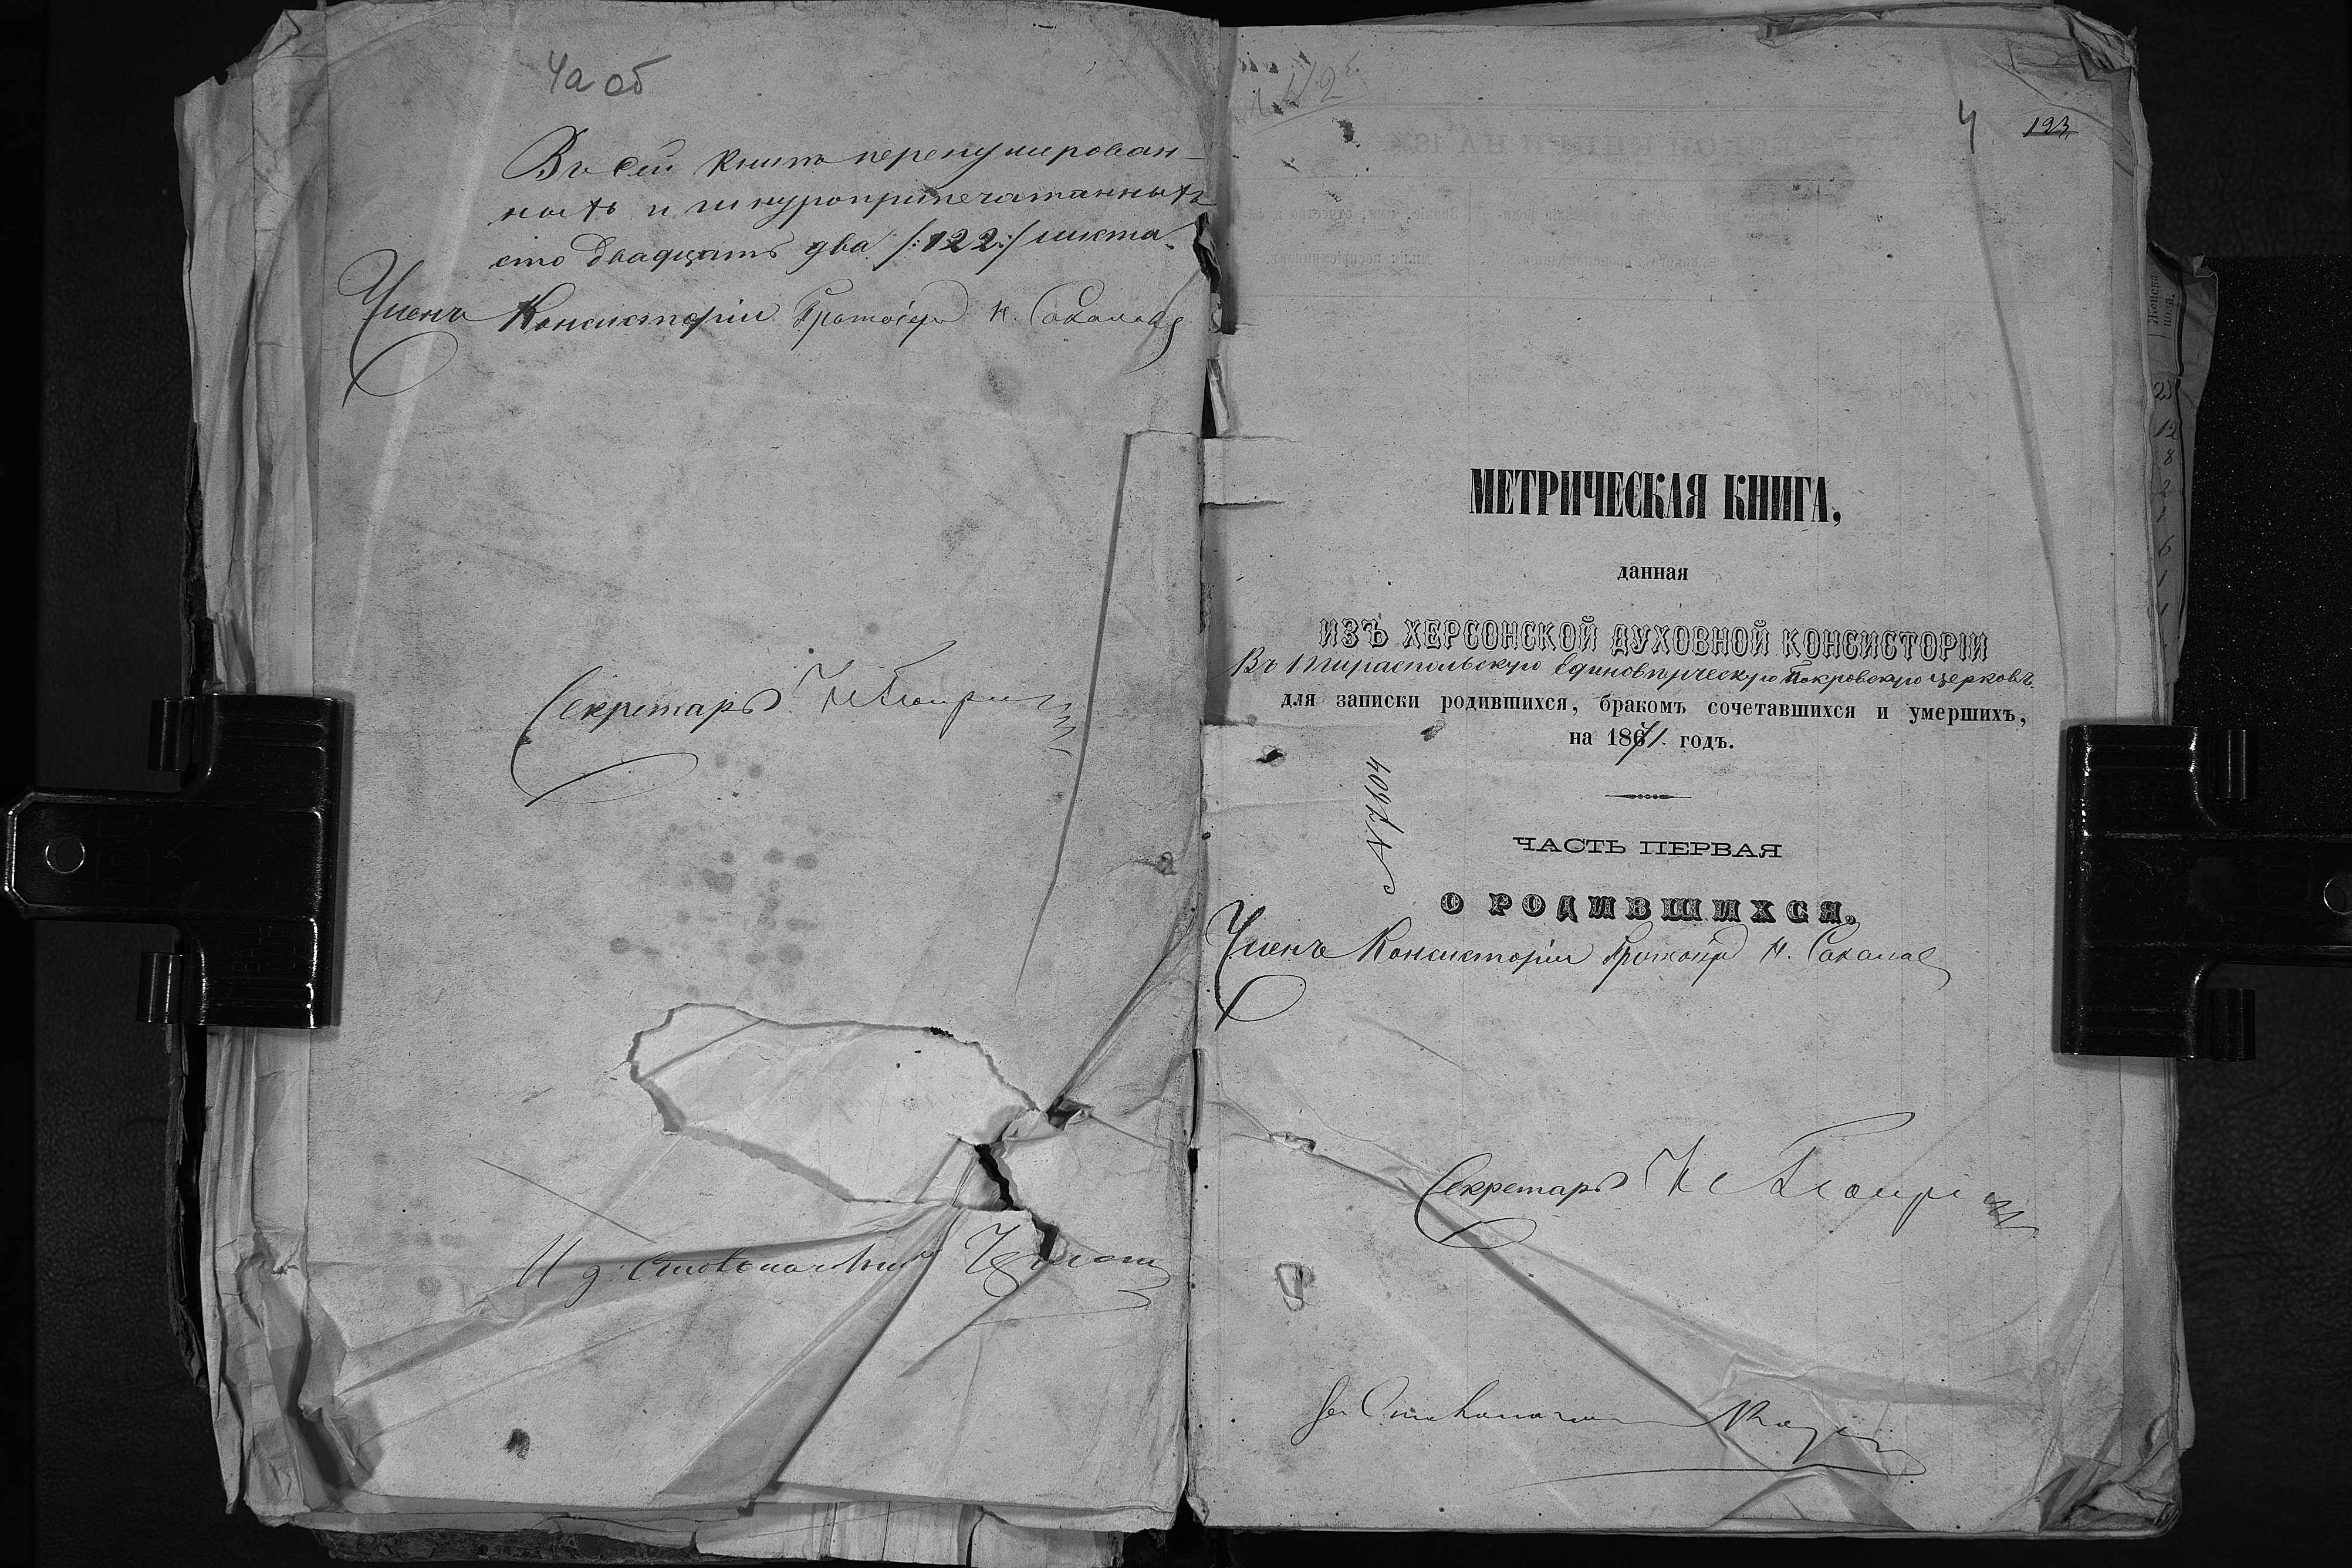 4а об
Въ сей книгѣ перенумерован-
ныхъ и шнуроприпечатанныхъ
сто двадцать два /:122:/ листа.
Членъ Консисторіи Протоіерей Н. Соколовъ
Секретарь
И д. Столоначальника
4 123
МЕТРИЧЕСКАЯ КНИГА,
данная
ИЗЪ ХЕРСОНСКОЙ ДУХОВНОЙ КОНСИСТОРІИ
Въ Тираспольскую Единовѣрческую Покровскую церковь
для записки родившихся, бракомъ сочетавшихся и умершихъ,
на 1871 годъ.
№ 7604
ЧАСТЬ ПЕРВАЯ
О РОДИВШИХСЯ.
Членъ Консисторіи Протоіерей Н. Соколовъ
Секретарь
Столоначальника